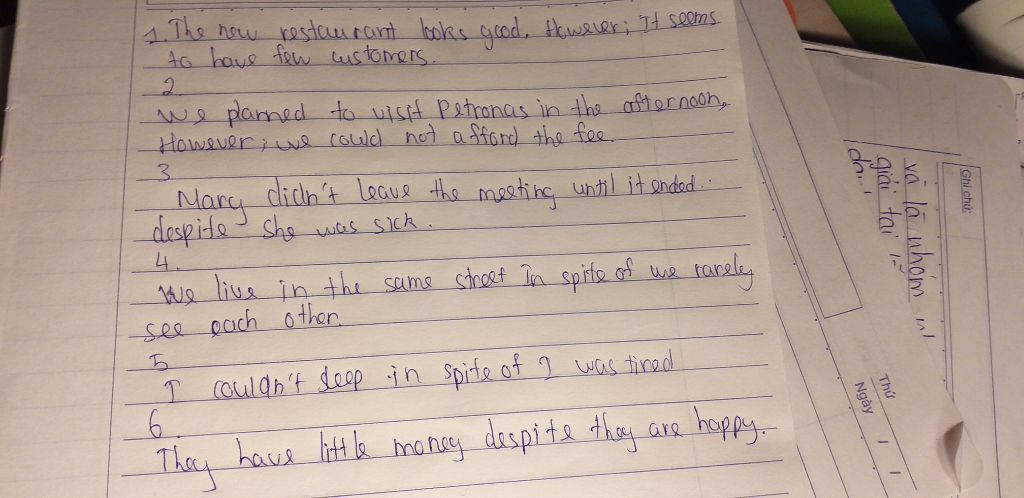 1. The new restaurant looks good, However; It seems
to have few customers.
2.
We planned to visit Petronas in the afternoon,
However; we could not afford the fee.
3
Mary didn't leave the meeting until it ended.
despite she was sick.
4.
We live in the same street In spite of we rarely
see each other.
5
I couldn't sleep in spite of I was tired
6.
They have little money despite they are happy.
Ghi chú:
và là nhóm
giải tại
Thứ
Ngày